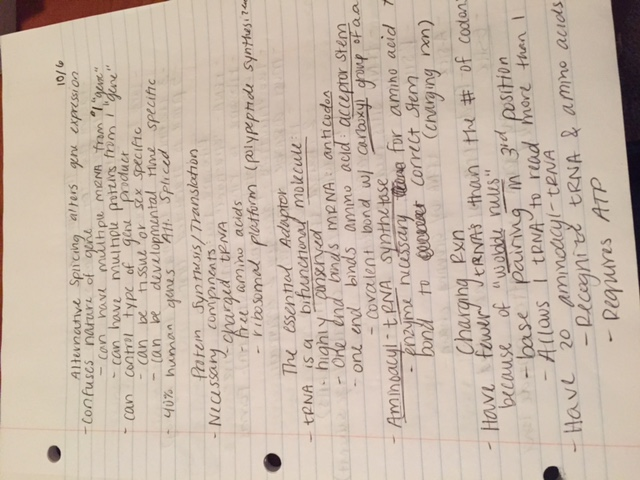 10/6
Alternative Splicing alters gene expression
- confuses nature of gene
- can have multiple mRNA from 1 "gene"
- can have multiple proteins from 1 "gene"
- can control type of gene product
- can be tissue or sex specific
- can be developmental time specific
- 40% human genes Alt. Spliced
Protein Synthesis/Translation
- Necessary components
- charged tRNA
- free amino acids
- ribosomal platform (polypeptide synthesi
The essential Adaptor
- tRNA is a bifunctional molecule:
- highly conserved
- one end binds mRNA: anticodon
- one end binds amino acid: acceptor stem
- covalent bond w/ carboxyl group of aa
- Aminoacyl-tRNA synthetase
- enzyme necessary for amino acid
bond to correct stem
(charging rxn)
Charging Rxn
- Have fewer tRNAs than the # of codon
because of "wobble rules"
- base pairing in 3rd position
- Allows 1 tRNA to read more than 1
- Have 20 aminoacyl-tRNA
- Recognize tRNA & amino acids
- Requires ATP